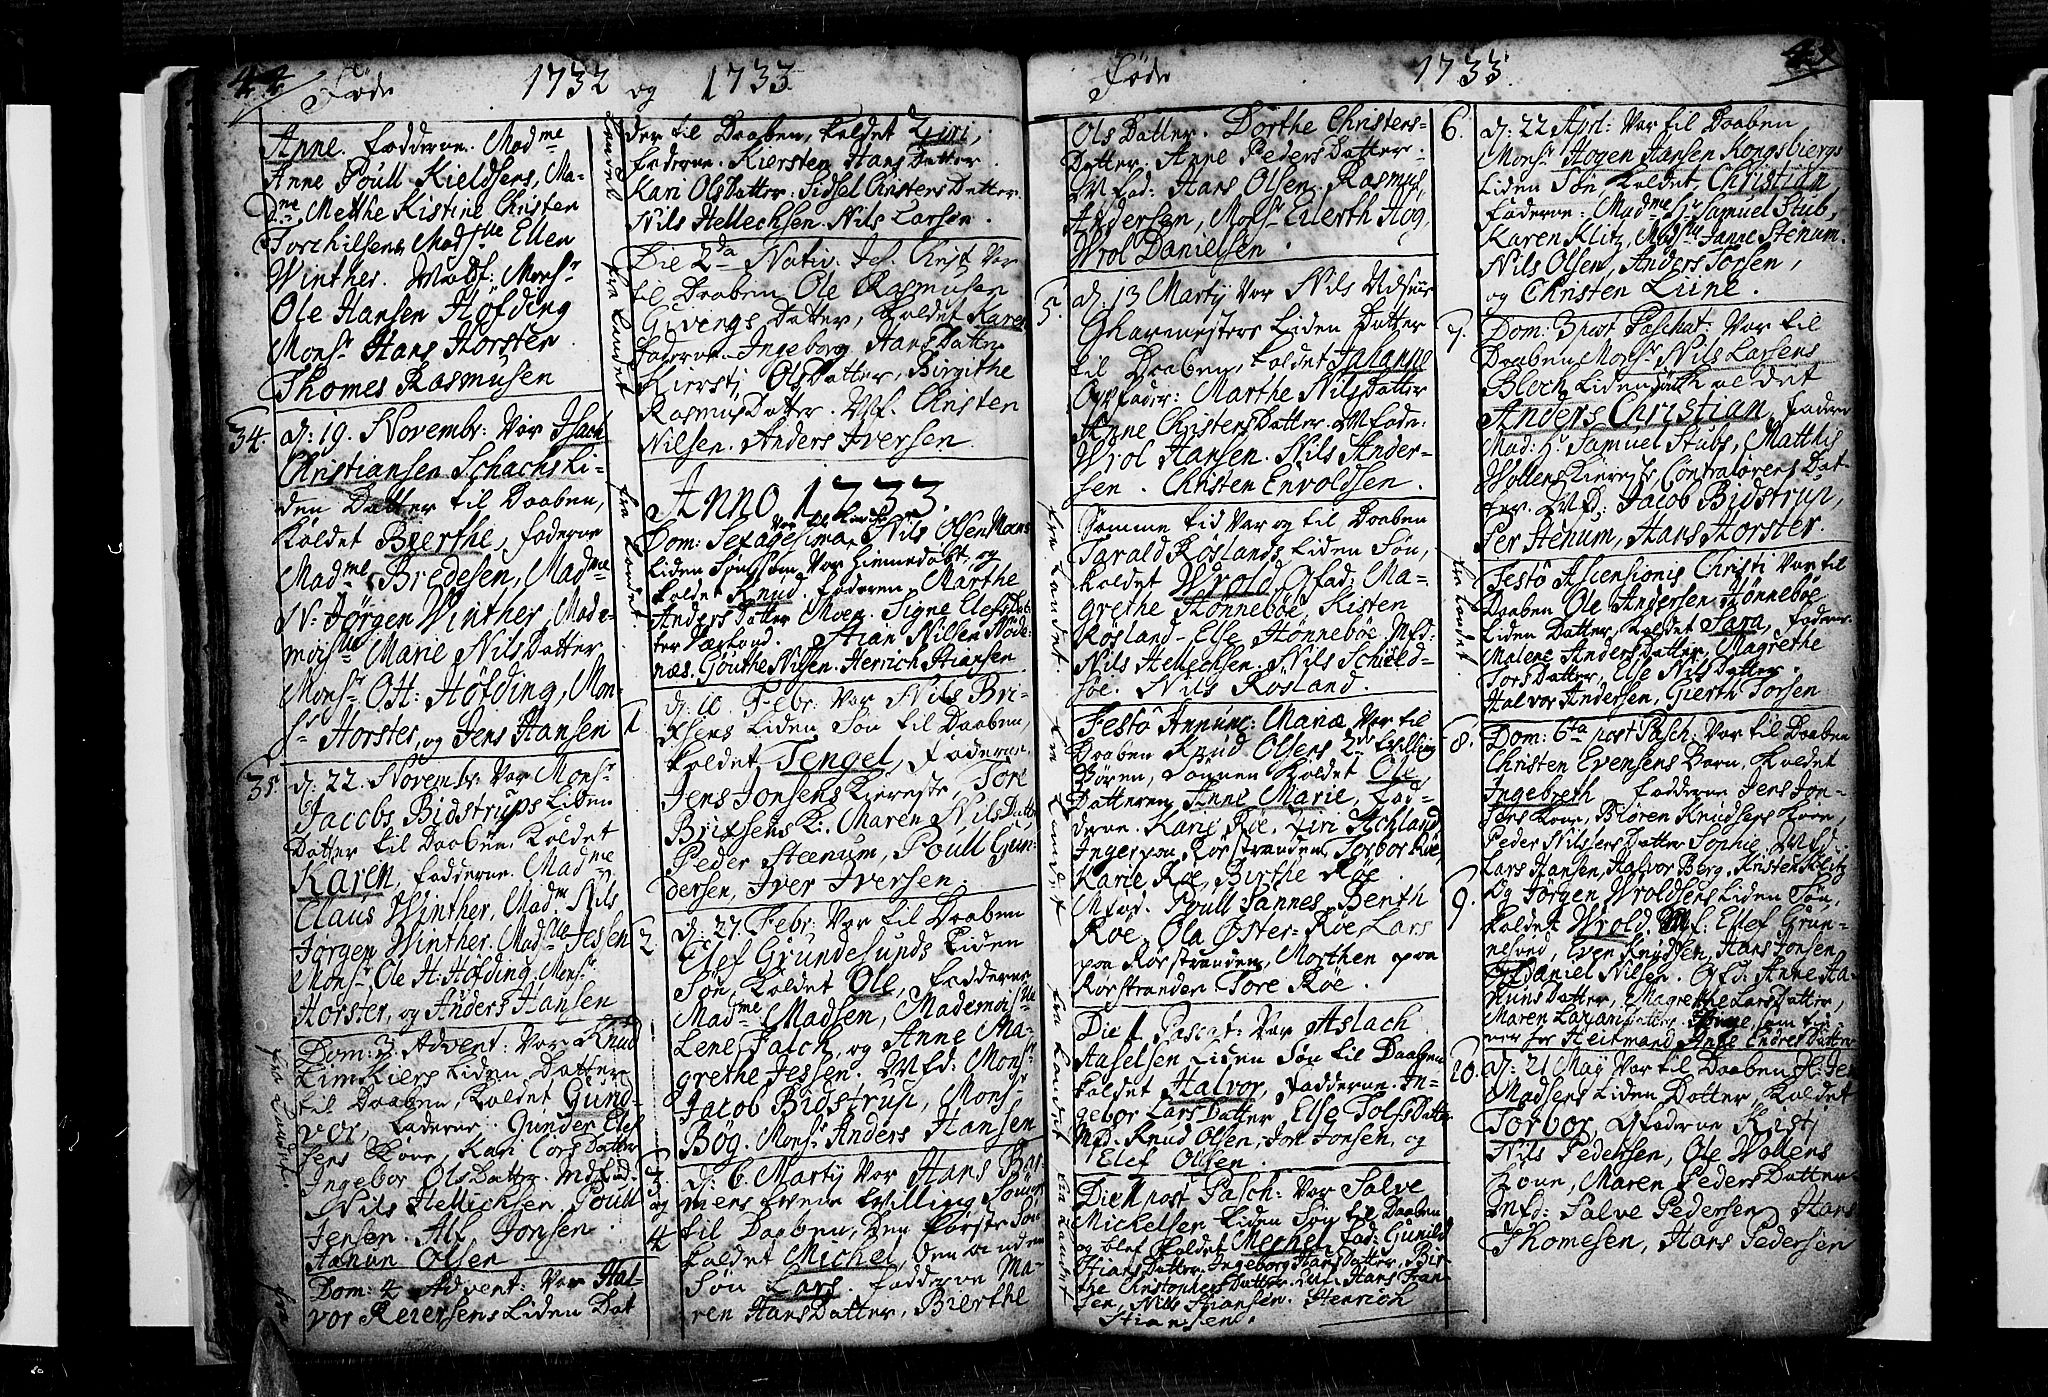 44 Føde 1732 og 1733
Anne. Fadderne. Madme
Anne Poull Kieldsens, Ma-
Dme Mette Kistine Christen
Torchilsens Madslle Ellen
Winther. Madf: Monsr
Ole Hansen Höfding
Monsr Hans Horster.
Thomes Rasmusen
34. d: 19. Novembr: Var Isach
Christiansen Schachs Li-
den Datter til Daaben,
Kaldet Bierthe, Faderne
Madme Bredesen, Madme
N: Jörgen Winther, Made-
moislle Marie Nils Datter
Monsr Ott: Höfding, Mon-
sr Horster, og Jens Hansen
35. d: 22. Novembr: Var Monsr
Jacobs Bidstrups Liden
Datter til Daaben, Kaldet
Karen, Fadderne. Madme
Claus Winther, Madm Nils
Jørgen Winther. Madslle Jessen
Monsr Ole H: Höfding, Monsr
Horster, og Anders Hansen
fra Landet
Dom: 3 Advent: Var Knud
Limkiers Liden Datter
til Daaben, Kaldet Gund-
vor, Faderne. Gunder Elef
sens Kone, Kari Lars Datter
Ingebor Ols Datter. Mdfad.
Nils Hellichsen. Poull
Jensen. Alf Jonsen.
Hanun Olsen
fra
Dom: 4 Advent: Var Hal
vor Reiersens Liden Dat
Landet
der til Daaben, kaldet Ziri,
Faderne. Kiersten Hans Datter.
Kari Ols Datter: Sidsel Christens Datter
Nils Hellechsen. Nils Larsen.
fra Landet
Die 2da Nativ. Jes. Christ Var
til Daaben Ole Rasmusen
Givengs Datter, Kaldet Karen
Faderne. Ingeborg Hans Datter
Kiersti Ols Datter, Birgithe
Rasmus Datter. Mf. Christen
Nilsen. Anders Iversen.
Anno 1733.
fra Landet
Dom: Sexagesima Var til Kircke Nils Olsen Moens
Liden Søn, som Var Hiemmedøbt, og
kaldet Knud. Faderen, Marthe
Anders Datter Moen. Signe Elefs Dat
ter Værland. Stian Nilsen Nöde-
næs. Gouthe Nilsen. Henrich Stiansen
1. d: 10. Febr: Var Nils Bri-
xsens Liden Søn til Daaben,
kaldet Tengel, Faderne,
Jens Jonsens Kiereste, Tore
Brixsens K:. Maren Nils Datter
Peder Steenum, Poull Gun-
dersen, Iver Iversen.
2. d: 27. Febr: Var til Daaben
Elef Grundesunds Liden
Søn, Kaldet Ole, Fadderne
Madme Madsen, Mademoislle
Lene Falch, og Anne Ma-
grethe Jessen. Mfd: Monsr
Jacob Bidstrup, Monsr
Bög. Monsr Anders Hansen
3. og 4. d: 6. Martij Var Hans Bar-
mens tvende tvilling Sønner
til Daaben, Den første Søn
kaldet Michel, den anden
Søn Lars. Fadderne Ma-
ren Hans Datter, Bierthe
Føde 1733. 45
Ols Datter. Dorthe Christens-
Datter, Anne Peders Datter.
Mfad: Hans Olsen. Rasmus
Andersen, Monsr Eilerth Hog,
Wrol Danielsen.
5. d: 13 Martij Var Nils Vidsteens
Gharmesters Liden Datter
til Daaben, Kaldet Johanne
Qvfader: Marthe Nils Datter
Anne Christens Datter. Mfade:
Wrol Hansen. Nils Ander-
sen. Christen Envoldsen.
fra Landet
Samme tid Var og til Daaben
Tarald Röslands Liden Søn,
kaldet Wrold Qfad: Ma-
grethe Hønneböe, Kisten
Rösland - Else Hönneböe. Mfd:
Nils Hellechsen. Nils Schield-
söe. Nils Rösland.
fra Landet
Festo Annunc: Mariæ Var til
Daaben Knud Olsens 2de tvilling
Børen, Sønnen Kaldet Ole,
Datteren Anne Marie, Fad-
derne. Karie Röe, Ziri Achland
Inger paa Rorstranden, Torbor Röe,
Karie Roe, Birthe Röe.
Mfad. Poull Jannes, Benth
Roe. Ola Øster-Röe, Lars
paa Rörstranden, Morthen paa
Rorstranden Tore Röe.
fra Landet
Die 1 Pascat: Var Aslach
Aaselsen Liden Søn til Daaben
kaldet Halvor, Fadderne. In-
gebor Lars Datter, Else Tolfs Datter
Mfd. Knud Olsen, Jore Jonsen, og
Elef Olsen.
fra Landet
Die 11 post Pasch: Var Salve
Mickelsen Liden Søn til Daaben
og blef kaldet Mechel, Fad: Gunild
Stians Datter. Ingeborg Hans Datter, Bir-
the Christophers Datter. Mf: Hans Han-
sen, Nils Stiansen. Henrich
Stiansen.
6. d: 22 Aprl: Var til Daaben
Monsr Hogen Hansen Kongsbiergs
Liden Søn Kaldet, Christian,
Faderne: Madme Hr Samuel Stub,
Karen Klitz, Madslle Janne Stenum.
Nils Olsen, Anders Torsen,
og Christen Lüne.
7. Dom: 3 post Paschat: Var til
Daaben Monsr Nils Larsens
Bloch Liden Søn kaldet
Anders Christian, Fader
Mad: Hr Samuel Stubs, Matthis
Wollens Kiereste, Contralørens Dat-
ter. Mfd: Jacob Bidstrup,
Per Stenum, Hans Horster.
fra Landet
Festo Ascensionis Christi Var til
Daaben Ole Andersen Hönneböe
Liden Datter, Kaldet Sara, Fadder:
Malene Anders Datter, Magrethe
Tors Datter, Else Nils Datter.
Halvor Andersen, Gierth Torsen
8. Dom: 6ta post Pasch: Var til Daaben
Christen Evensens Barn, Kaldet
Ingebreth Fadderne Jens Jon-
sens Kone, Biören Knudsens Kone,
Peder Nilsens Datter Sophie. Mfd:
Lars Hansen, Halvor Berg, Kristen Klitz
9. Og Jörgen Wroldsens Liden Søn,
Kaldet Wrold. Mf: Ellef Grun-
nesund, Even Knudsen, Hans Jonsen,
Daniel Nilsen. Qfd: Anne Ha-
Datter, Magrethe Lars Datter,
Maren Datter
Heitmand Anne Endres Datter
10. d: 21 Maij Var til Daaben H: Jes
Madsens Liden Datter, Kaldet
Torbor, Qfaderne Kisti
Nils Pedersen, Ole Wollens
Kone, Maren Peders Datter.
Mfd: Salve Pedersen, Hans
Thomesen, Hans Pedersen